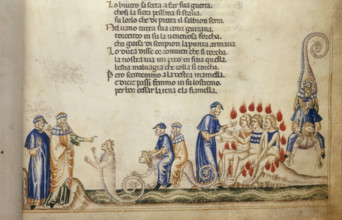 Lo bivero s asetta a far sua guerra
chosi la fiera pessima si stava
su lorlo che di pietra il sabion serra.
Nel vano tutta sua coda guizzava
torcendo in su la venenosa forcha
cha guisa di scorpion la punta armava.
Lo duca disse or convien che si torca
la nostra via un poco insino a quella
bestia malvagia che colla si corcha.
Pero scendemmo a la destra mamella
e diece passi femmo in su lo stremo
per ben cessar la rena e la fiamella.